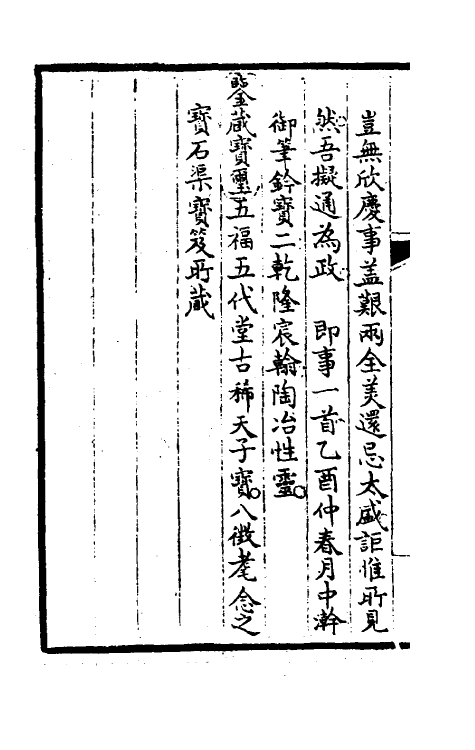 豈無欣慶事盖艱兩全美還忌太盛詎惟所見
然吾擬通為政　即事一首乙酉仲春月中澣
御筆鈐寶二乾隆宸翰陶冶性靈○
鑒藏寶璽五福五代堂古稀天子寶○八徵耄念之
寶石渠寶笈所藏